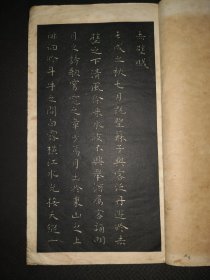 赤壁賦
壬戌之秋七月既望蘇子與客泛舟遊於赤
壁之下清風徐來水波不興舉酒屬客誦明
月之詩歌窈窕之章少焉月出於東山之上
徘徊於斗牛之間白露橫江水光接天縱一